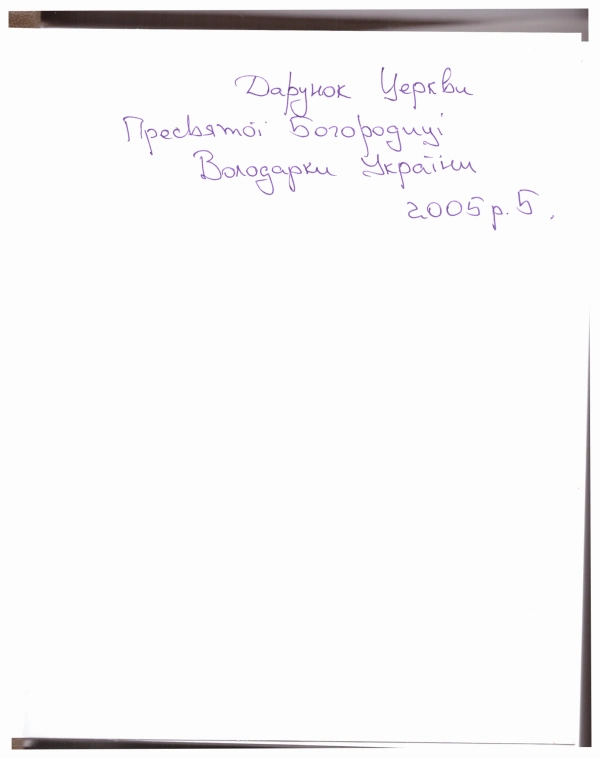 Дарунок Церкви
Пресвятої Богородиці
Володарки України
2005 р. Б.